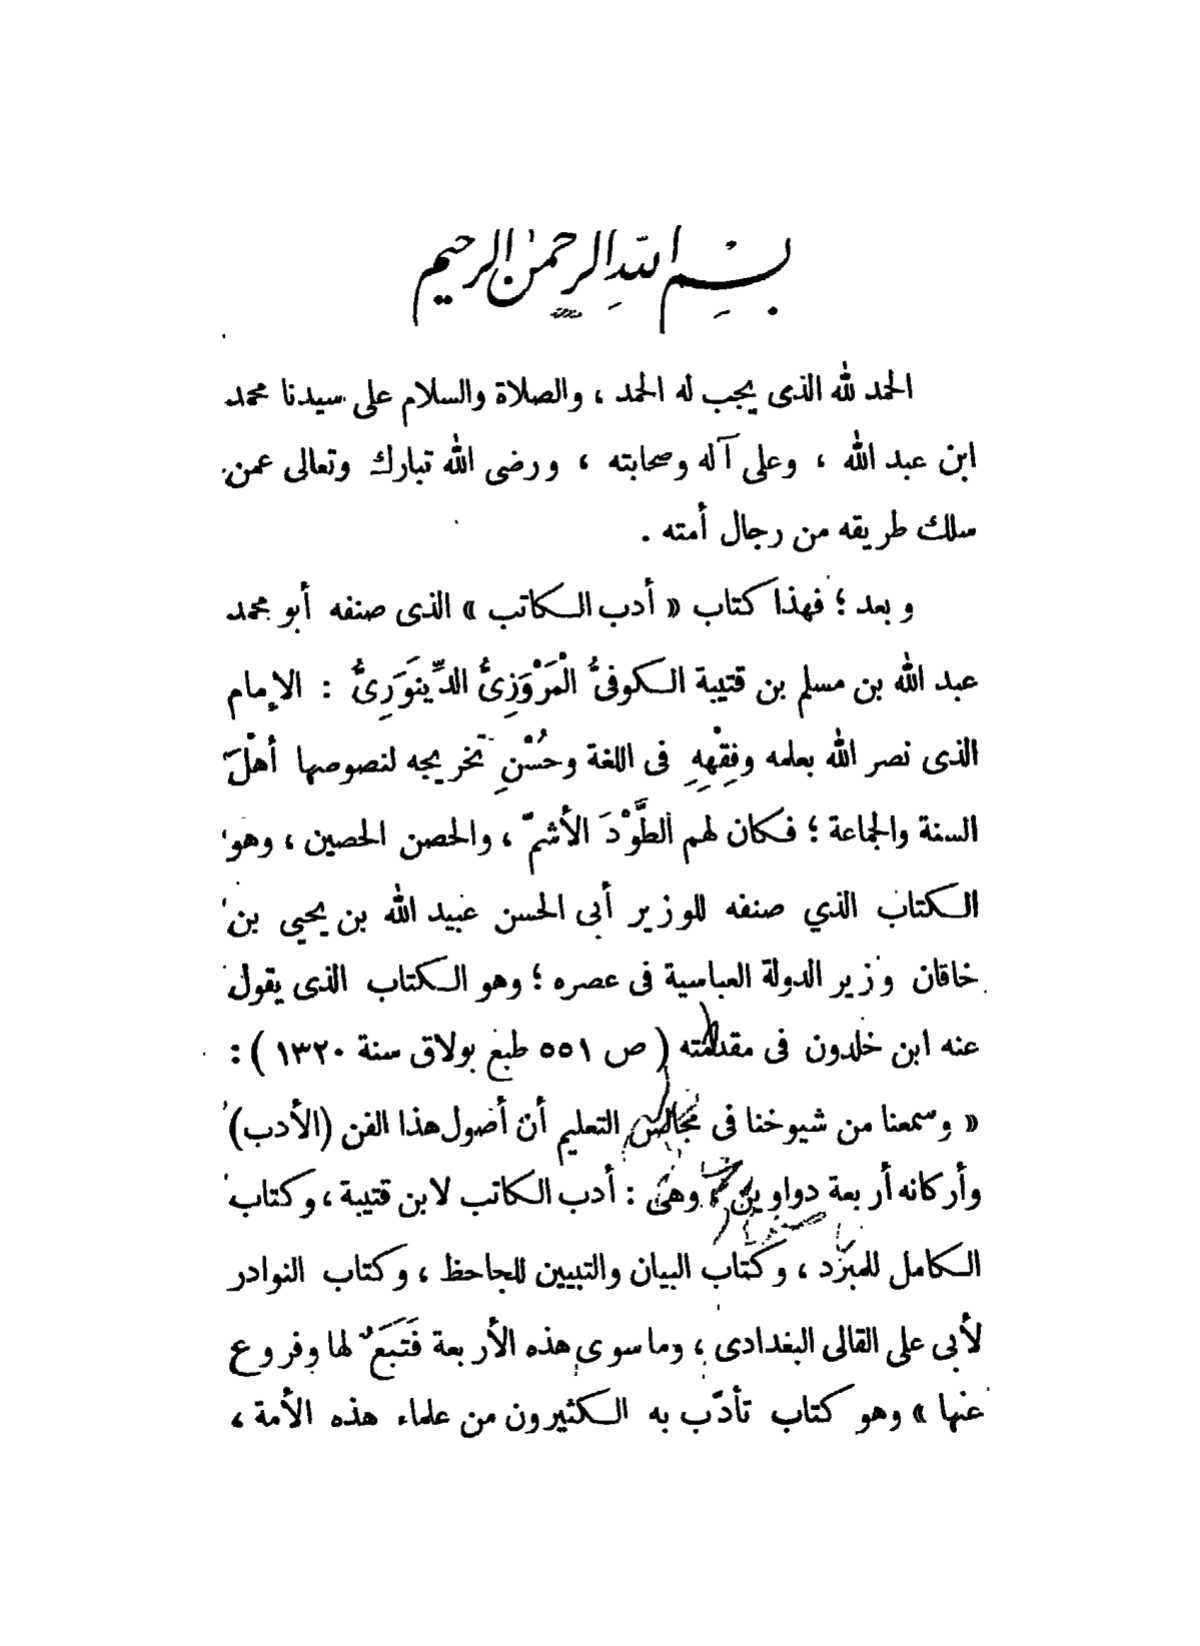 بسم الله الرحمن الرحيم
الحمد لله الذى يجب له الحمد ، والصلاة والسلام على سيدنا محمد
ابن عبد الله ، وعلى آله وصحابته ، ورضى الله تبارك وتعالى عمن
سلك طريقه من رجال أمته .
وبعد ؛ فهذا كتاب « أدب الكاتب » الذى صنفه أبو محمد
عبد الله بن مسلم بن قتيبة الكوفىُّ الْمَرْوَزِىُّ الدِّينَوَرِىُّ : الإمام
الذى نصر الله بعلمه وفِقْهِهِ فى اللغة وحُسْنِ تخريجه لنصوصها أهْلَ
السنة والجماعة ؛ فكان لهم الطَّوْدَ الأشمّ ، والحصن الحصين ، وهو
الكتاب الذي صنفه للوزير أبى الحسن عبيد الله بن يحيى بن
خاقان وزير الدولة العباسية فى عصره ؛ وهو الكتاب الذى يقول
عنه ابن خلدون فى مقدمته ( ص ٥٥١ طبع بولاق سنة ١٣٢٠ ) :
« وسمعنا من شيوخنا فى مجالس التعليم أن أصول هذا الفن (الأدب)
وأركانه أربعة دواوين ، وهى : أدب الكاتب لابن قتيبة ، وكتاب
الكامل للمبرَّد ، وكتاب البيان والتبيين للجاحظ ، وكتاب النوادر
لأبى على القالى البغدادى ، وما سوى هذه الأربعة فَتَبَعٌ لها وفروع
عنها » وهو كتاب تأدّب به الكثيرون من علماء هذه الأمة ،